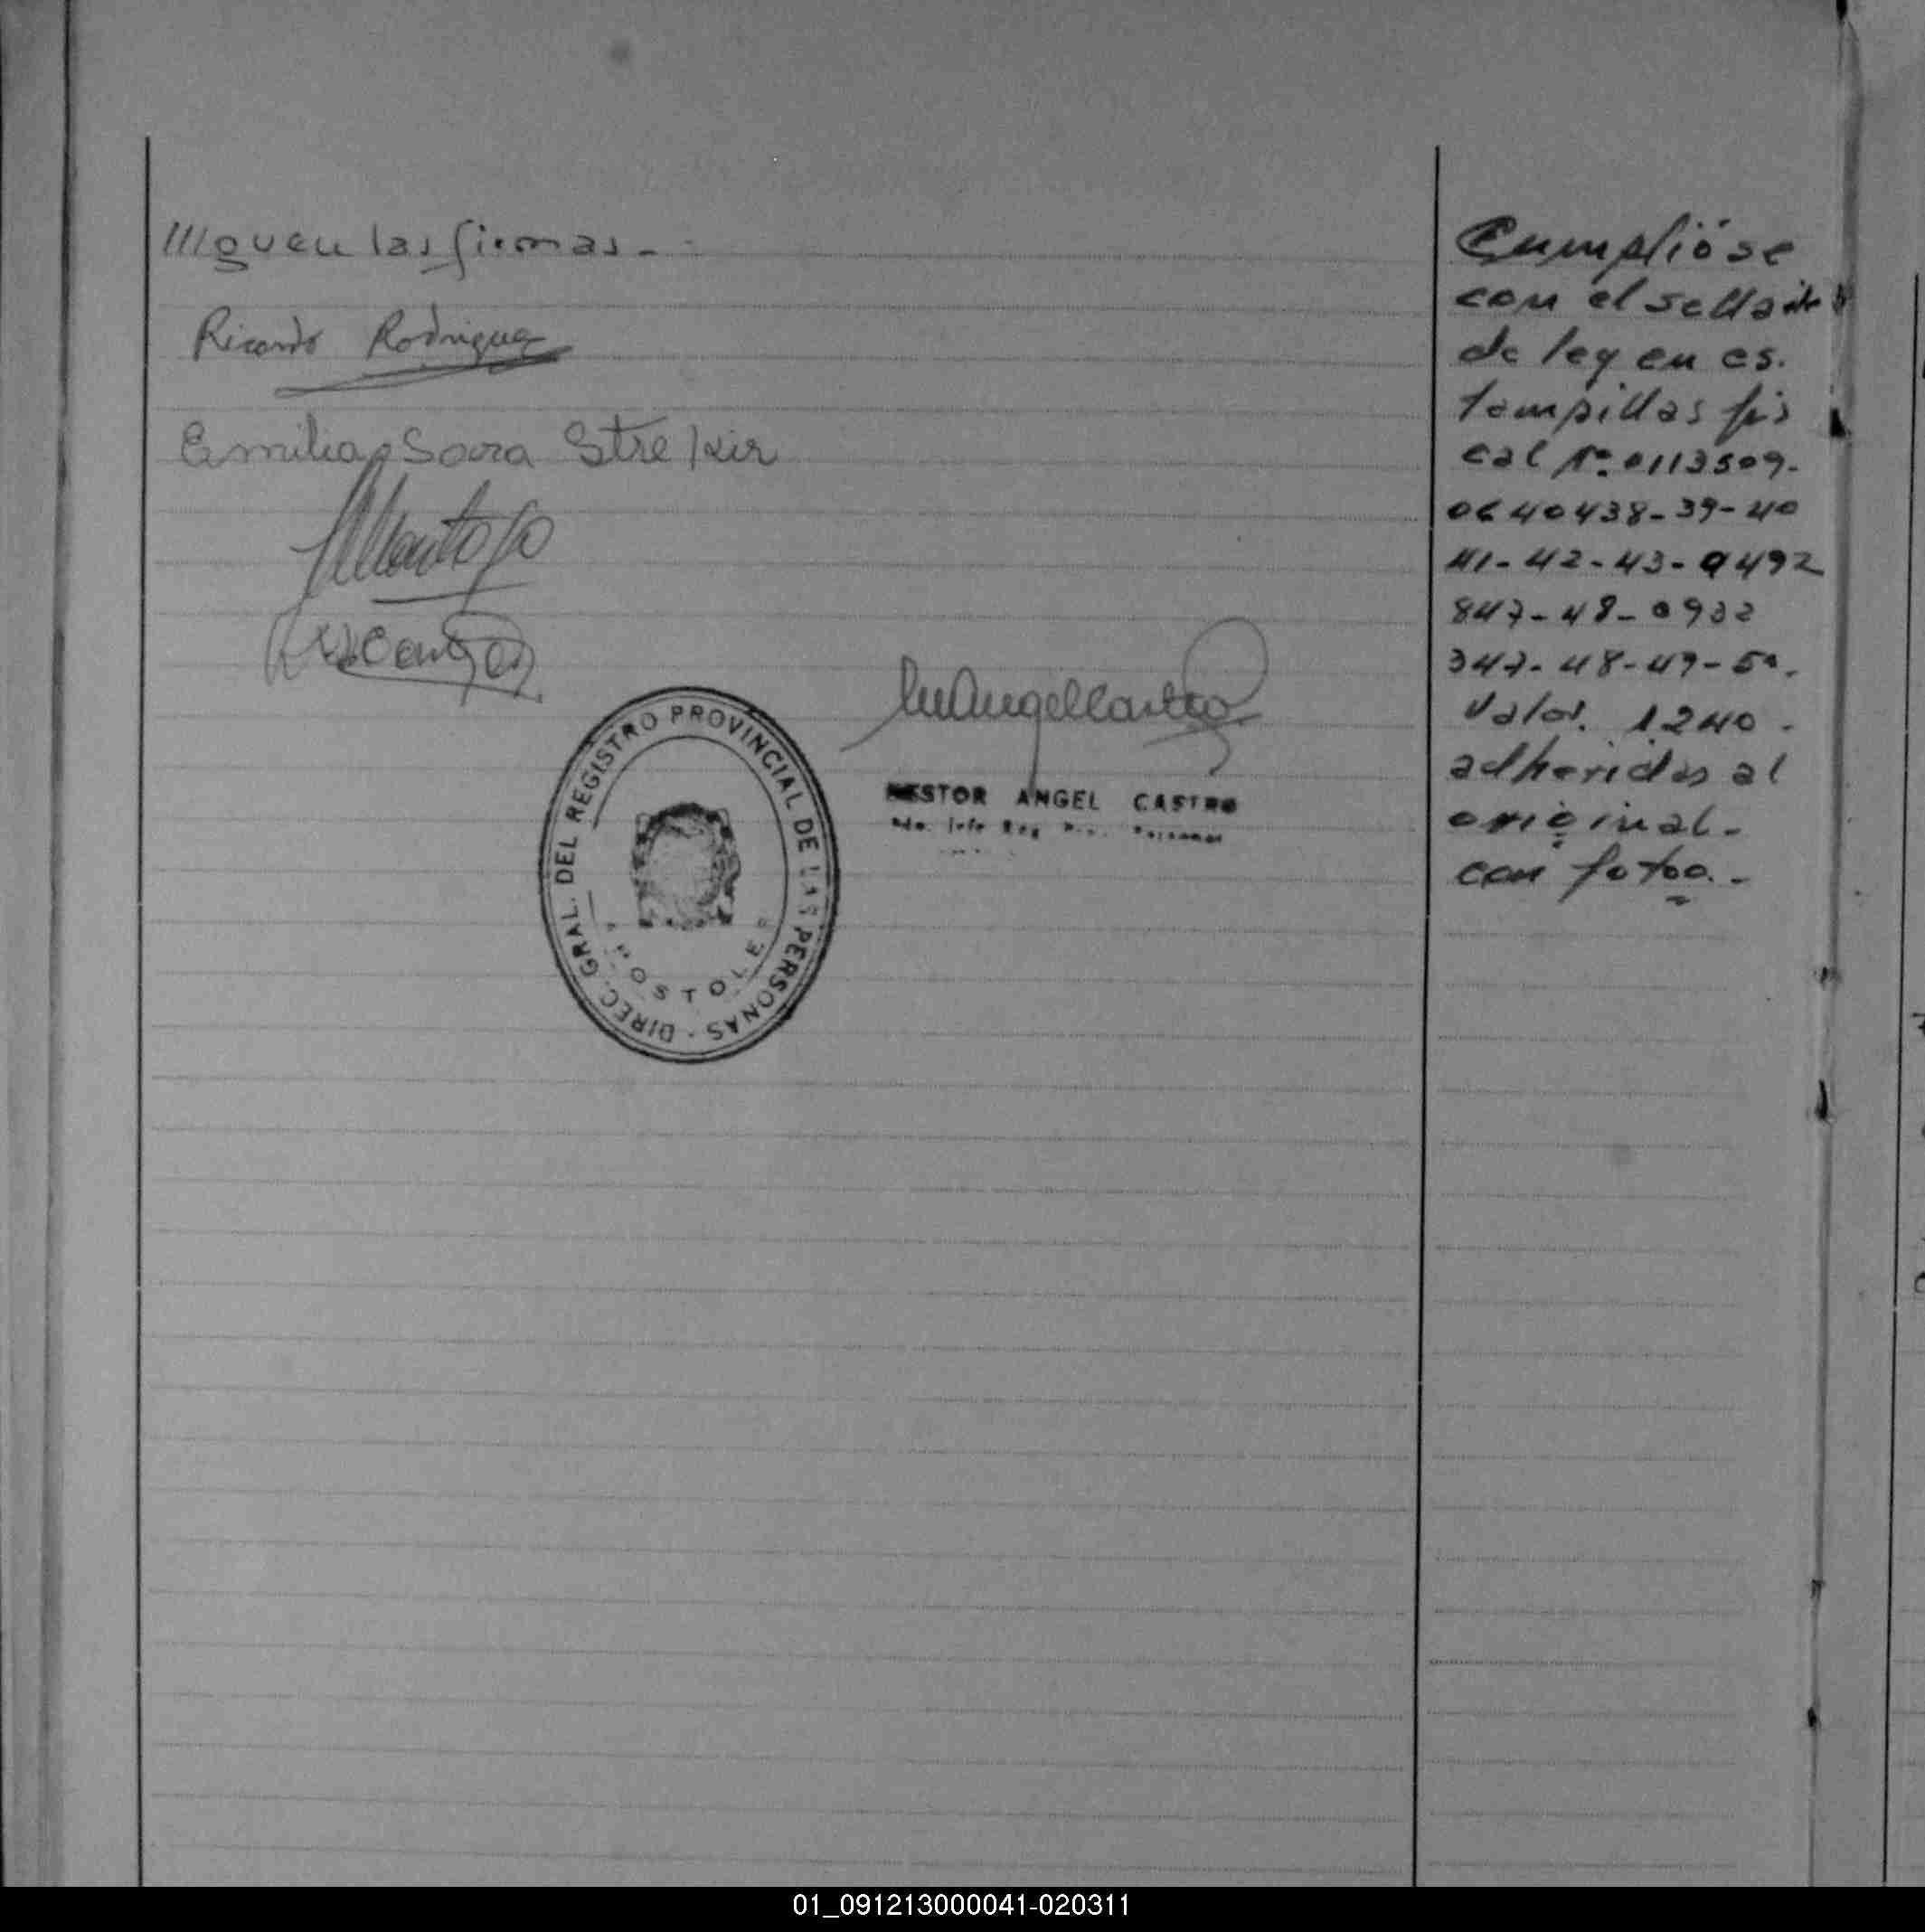 ///guen las firmas.-
Ricardo Rodriguez
Emilia Sara Strekir
DIREC. GRAL. DEL REGISTRO PROVINCIAL DE LAS PERSONAS -
APOSTOLES
NESTOR ANGEL CASTRO
Cumplióse
con el sellado
de ley en es.
tampillas fis
cal Nº 0113509.
0640438-39-40
41-42-43-0492
847-48-0932
347-48-49-50.
Valor. 1240.
adheridas al
original.
con fotoo.-
01_091213000041-020311